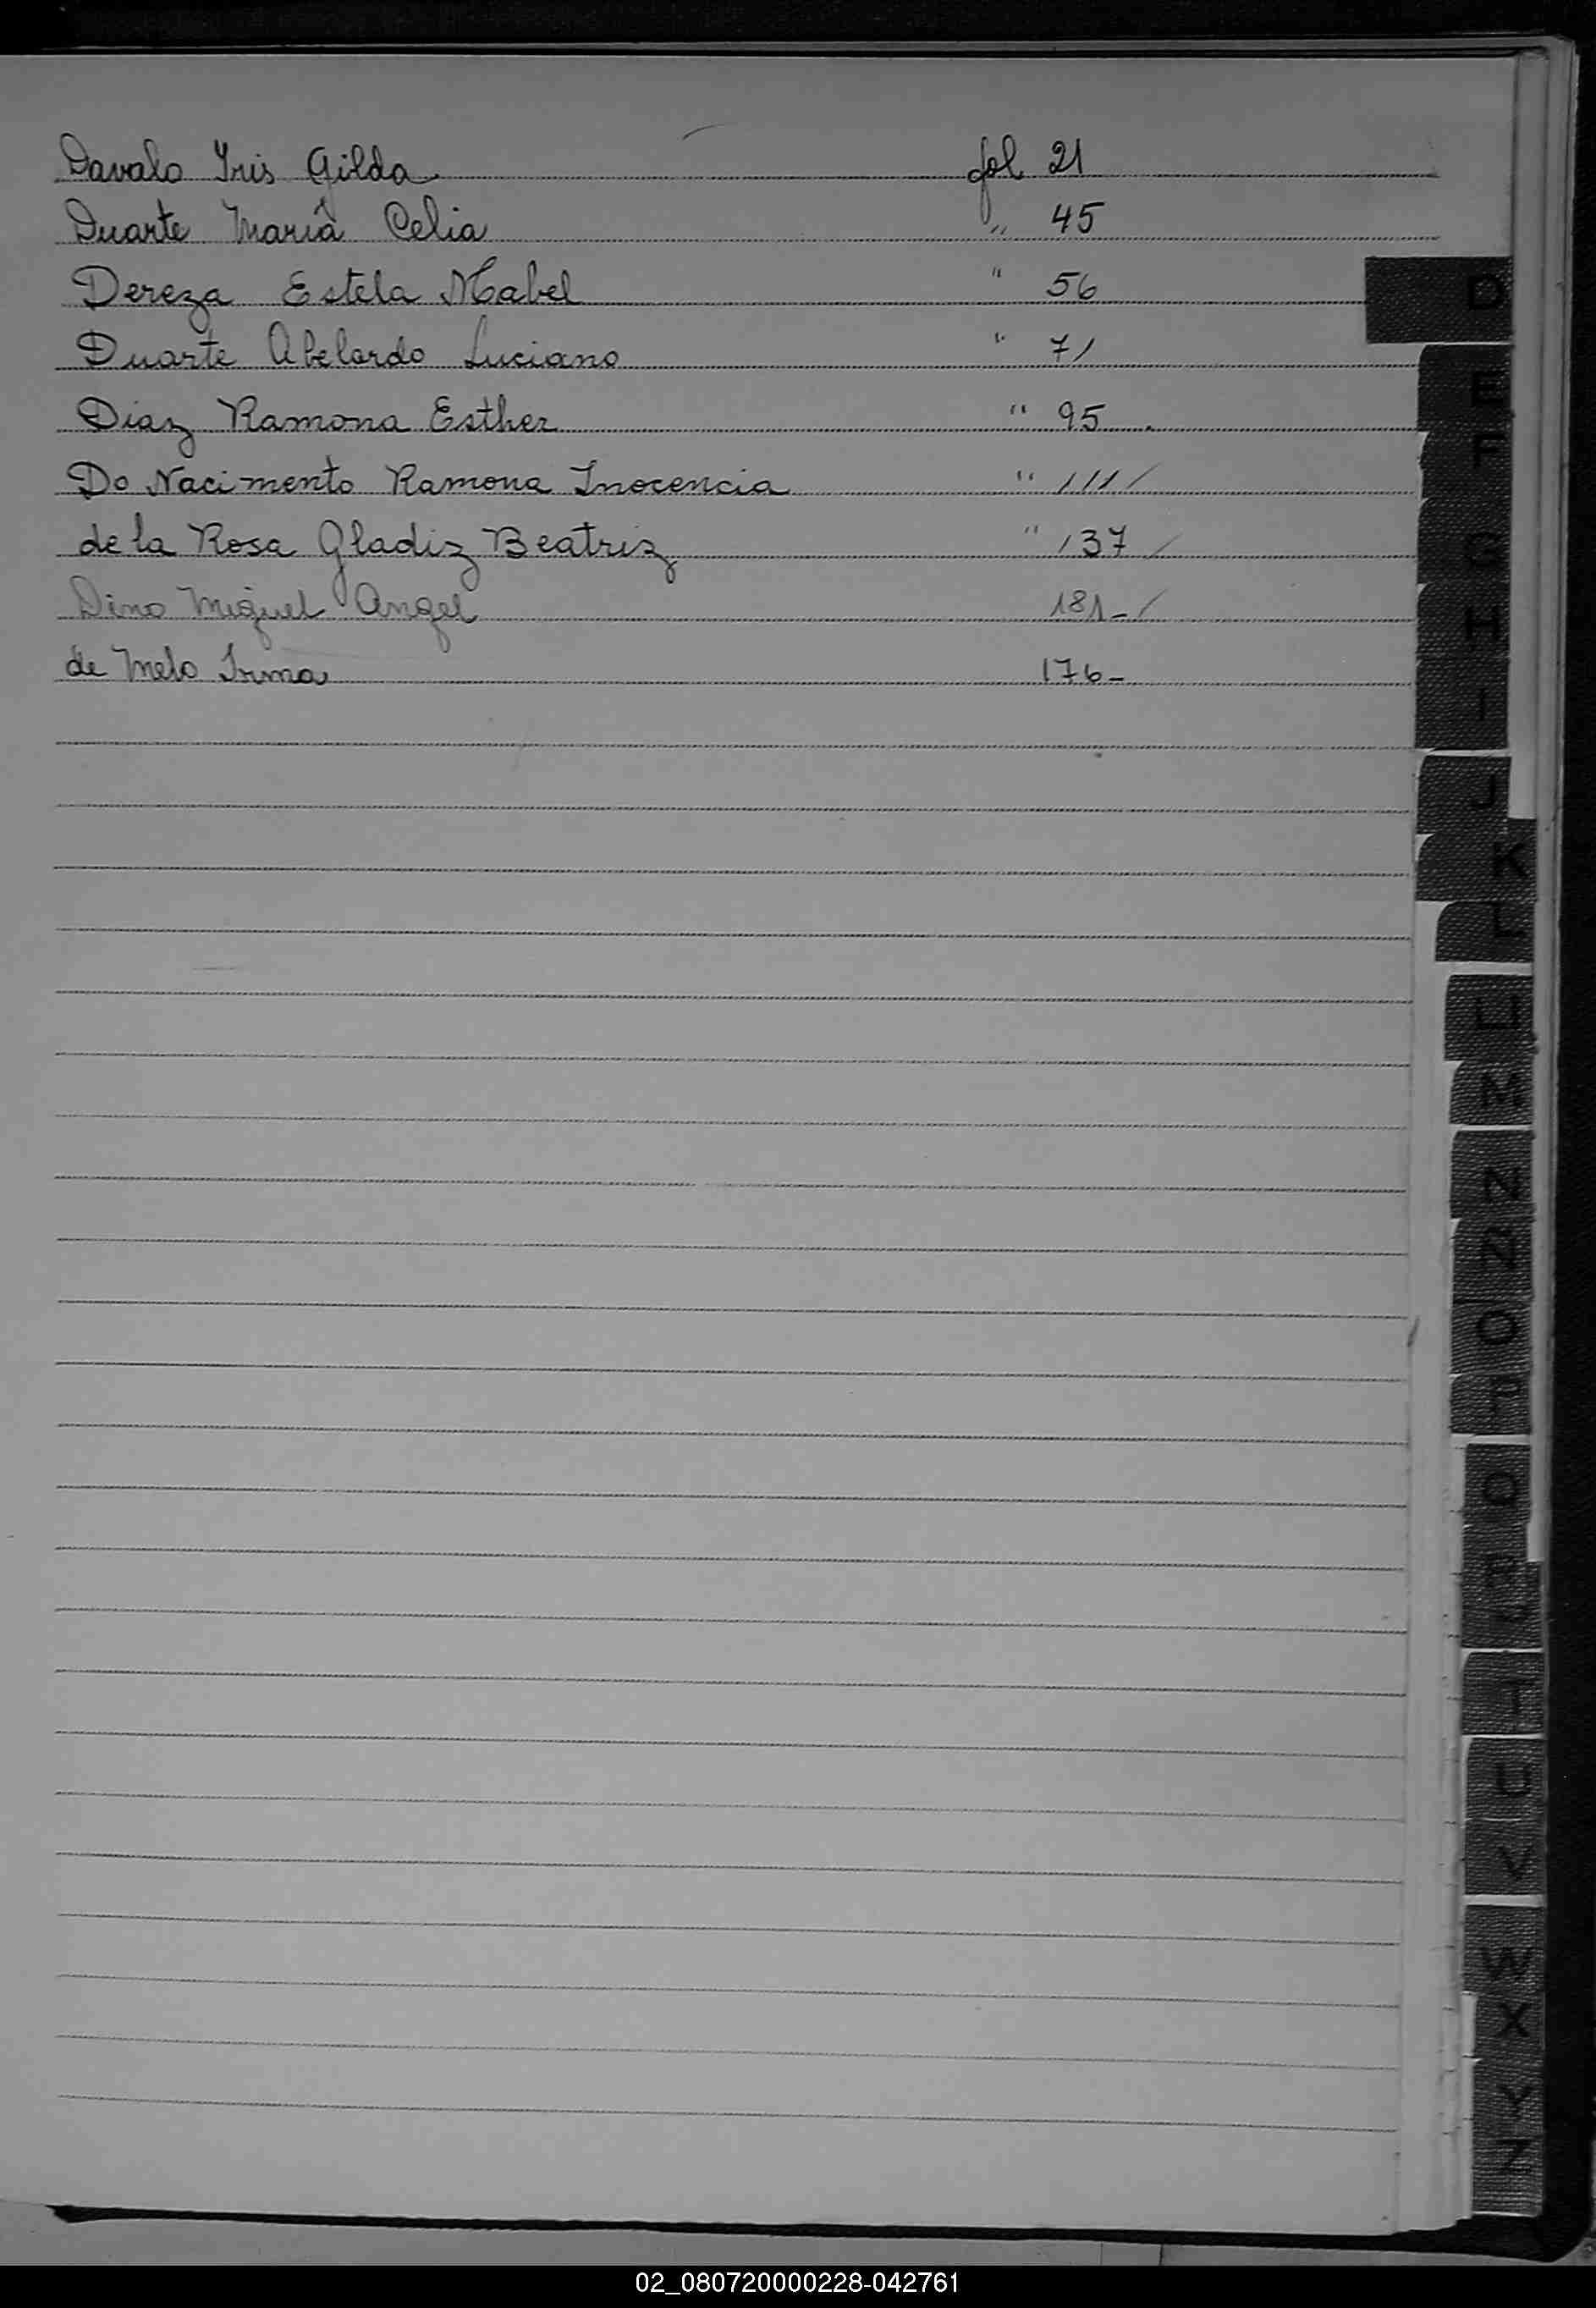 Davalo Yris Gilda fol 21
Duarte María Celia " 45
Dereza Estela Mabel " 56
Duarte Abelardo Luciano " 71
Diaz Ramona Esther " 95
Do Nacimento Ramona Inocencia " 111 /
de la Rosa Gladiz Beatriz " 137 /
Dino Miguel Angel 181- /
de Melo Irma 176-
D
E
F
G
H
I
J
K
L
LL
M
N
Ñ
O
P
Q
R
S
T
U
V
W
X
Y
Z
02_080720000228-042761